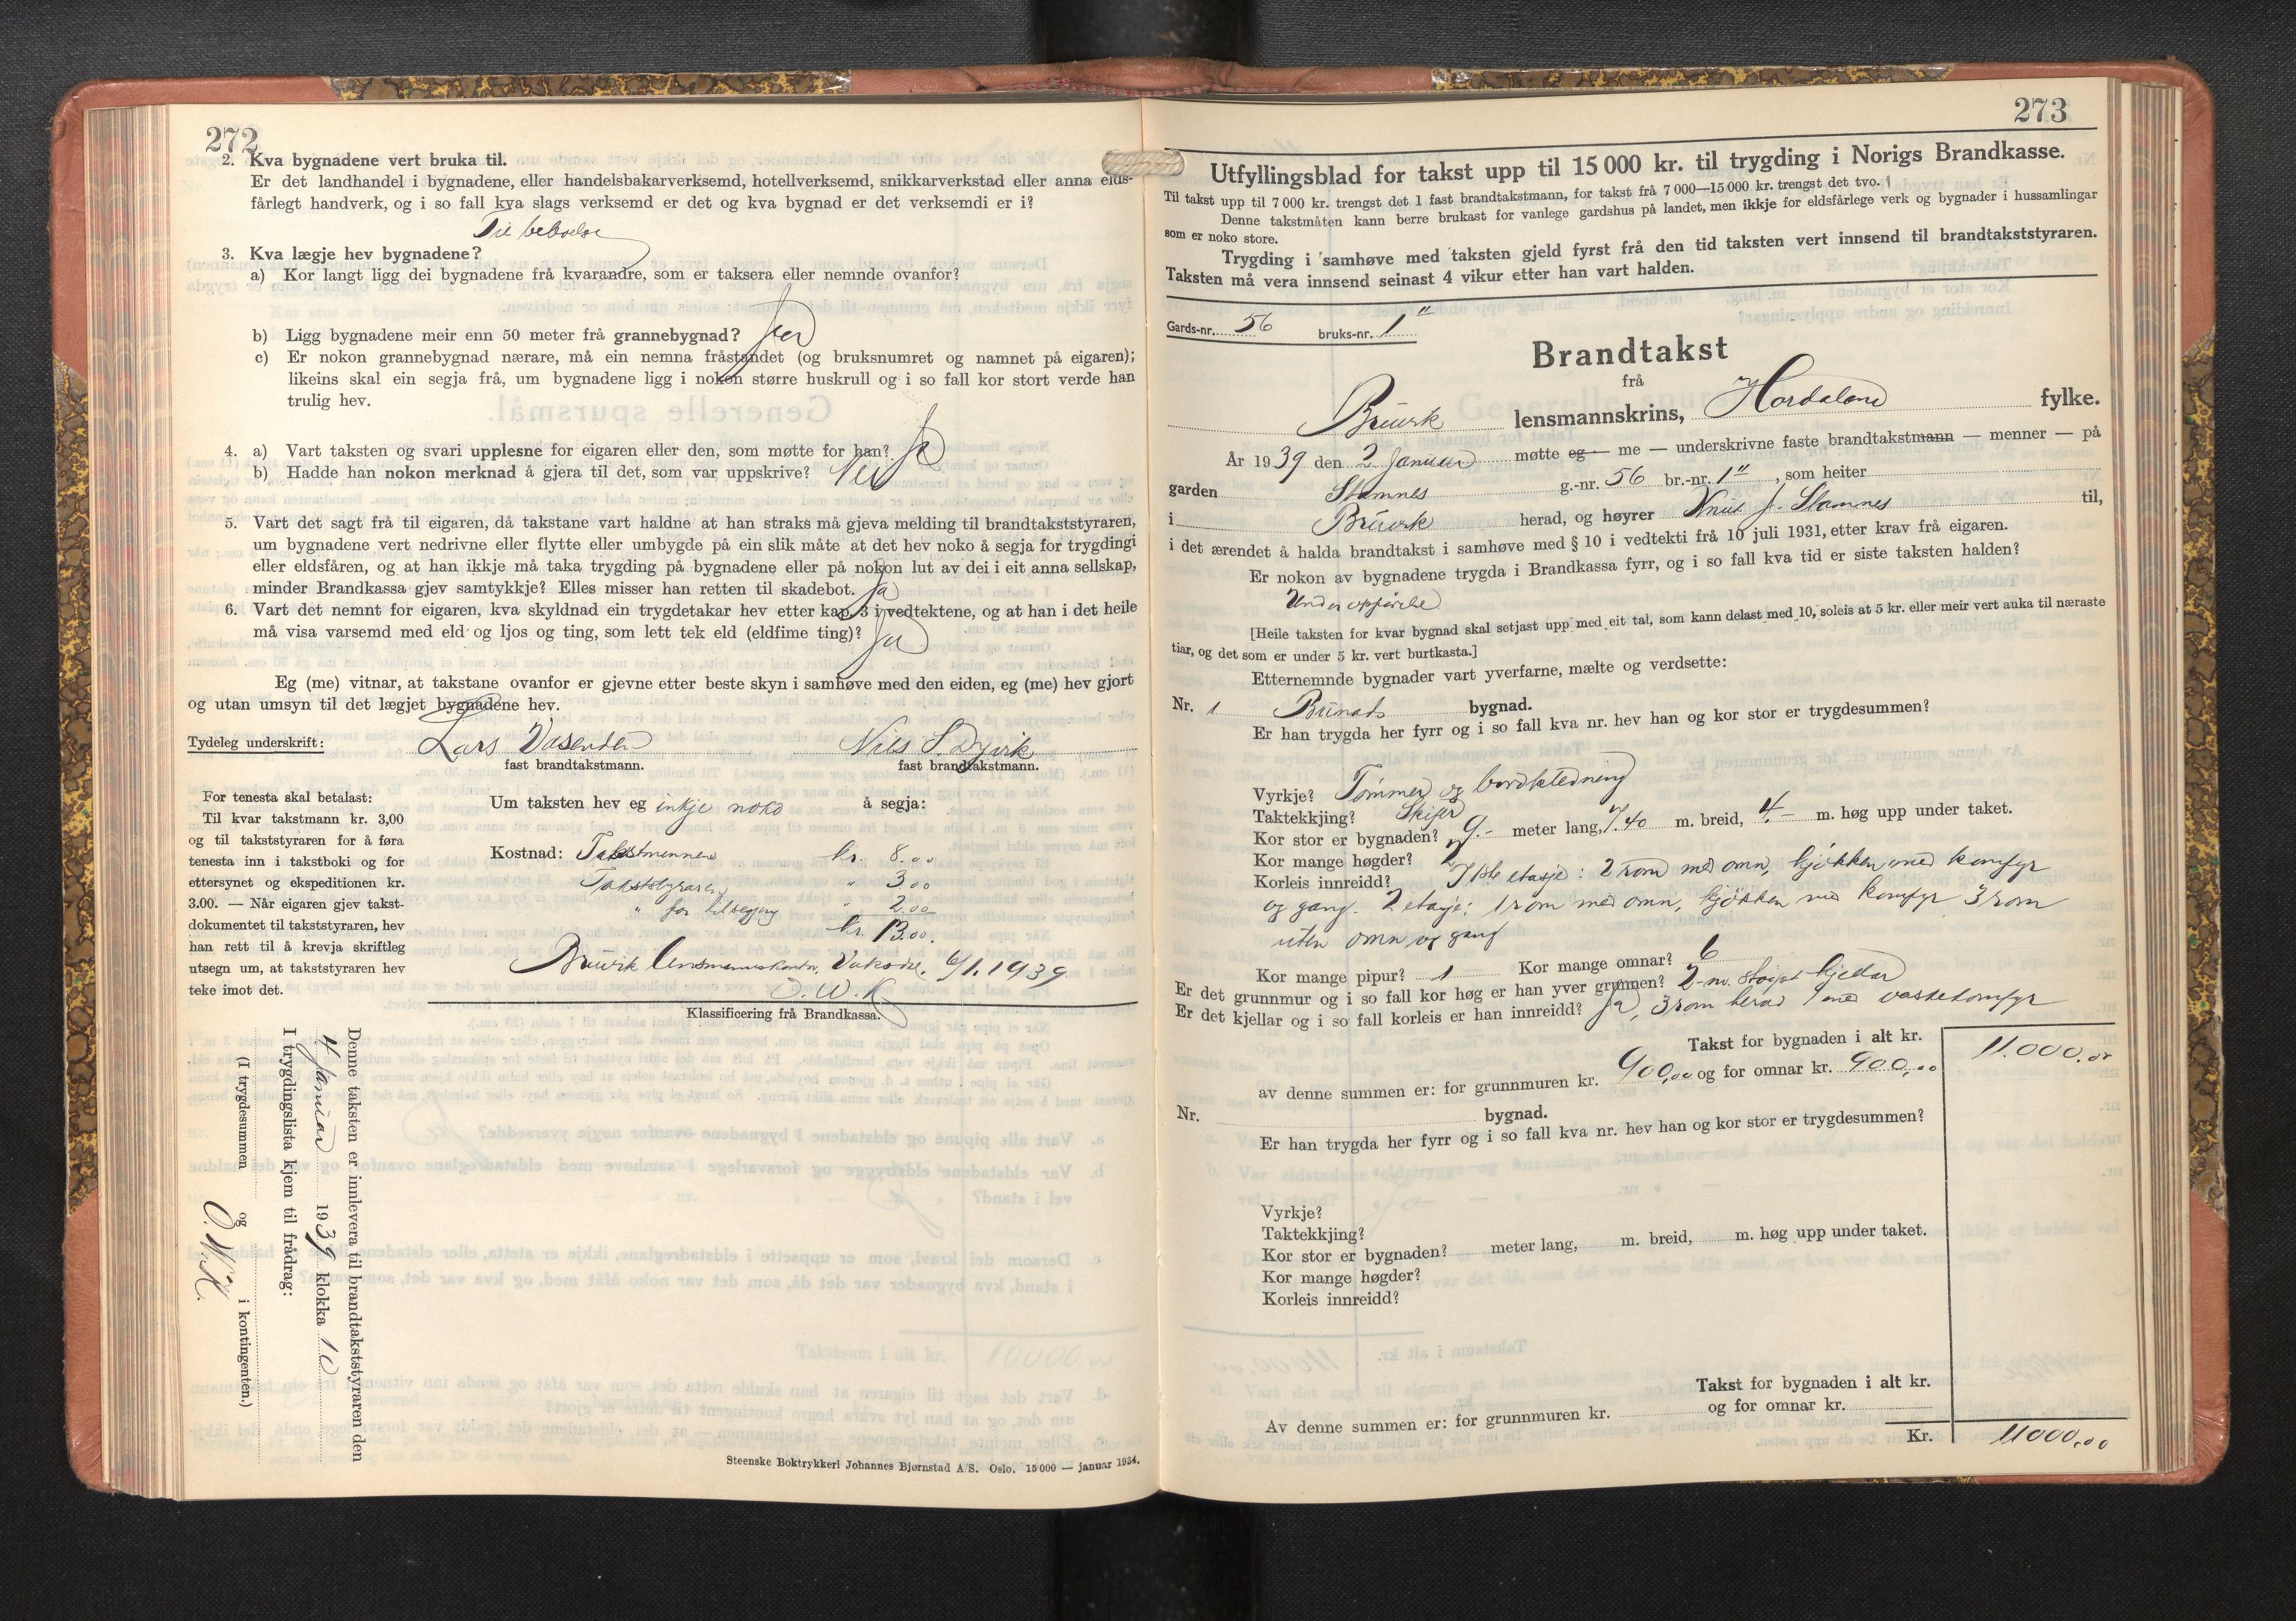 272
2. Kva bygnadene vert bruka til.
Er det landhandel i bygnadene, eller handelsbakarverksemd, hotellverksemd, snikkarverkstad eller anna elds-
fårlegt handverk, og i so fall kva slags verksemd er det og kva bygnad er det verksemdi er i?
Til beboelse
3. Kva lægje hev bygnadene?
a) Kor langt ligg dei bygnadene frå kvarandre, som er taksera eller nemnde ovanfor?
b) Ligg bygnadene meir enn 50 meter frå grannebygnad? Ja
c) Er nokon grannebygnad nærare, må ein nemna fråstandet (og bruksnumret og namnet på eigaren);
likeins skal ein segja frå, um bygnadene ligg i nokon større huskrull og i so fall kor stort verde han
trulig hev.
4. a) Vart taksten og svari upplesne for eigaren eller den, som møtte for han? Ja
b) Hadde han nokon merknad å gjera til det, som var uppskrive? Nei
5. Vart det sagt frå til eigaren, då takstane vart haldne at han straks må gjeva melding til brandtakststyraren,
um bygnadene vert nedrivne eller flytte eller umbygde på ein slik måte at det hev noko å segja for trygdingi
eller eldsfåren, og at han ikkje må taka trygding på bygnadene eller på nokon lut av dei i eit anna sellskap,
minder Brandkassa gjev samtykkje? Elles misser han retten til skadebot. Ja
6. Vart det nemnt for eigaren, kva skyldnad ein trygdetakar hev etter kap. 3 i vedtektene, og at han i det heile
må visa varsemd med eld og ljos og ting, som lett tek eld (eldfime ting)? Ja
Eg (me) vitnar, at takstane ovanfor er gjevne etter beste skyn i samhøve med den eiden, eg (me) hev gjort
og utan umsyn til det lægjet bygnadene hev.
Tydeleg underskrift: Lars Vasenden Nils S. Dyvik
fast brandtakstmann. fast brandtakstmann.
For tenesta skal betalast:
Til kvar takstmann kr. 3,00
og til takststyraren for å føra
tenesta inn i takstboki og for
ettersynet og ekspeditionen kr.
3.00. — Når eigaren gjev takst-
dokumentet til takststyraren, hev
han rett til å krevja skriftleg
utsegn um, at takststyraren hev
teke imot det.
Um taksten hev eg inkje noko å segja:
Kostnad: Takstmennene kr. 8.00
Takststyraren " 3.00
" for tilsegjing " 2.00
kr. 13.00.
Bruvik lensmannskontor, 6/1. 1939
O. W. K
Klassificering frå Brandkassa.
Denne taksten er innlevera til brandtakststyraren den
4 Januar 1939 klokka 10
I trygdingslista kjem til frådrag:
(I trygdesummen og i kontingenten.)
Steenske Boktrykkeri Johannes Bjørnstad A/S. Oslo. 15 000 — januar 1934.
273
Utfyllingsblad for takst upp til 15 000 kr. til trygding i Norigs Brandkasse.
Til takst upp til 7 000 kr. trengst det 1 fast brandtakstmann, for takst frå 7 000—15 000 kr. trengst det tvo.
Denne takstmåten kann berre brukast for vanlege gardshus på landet, men ikkje for eldsfårlege verk og bygnader i hussamlingar
som er noko store.
Trygding i samhøve med taksten gjeld fyrst frå den tid taksten vert innsend til brandtakststyraren.
Taksten må vera innsend seinast 4 vikur etter han vart halden.
Gards-nr. 56 bruks-nr. 1"
Brandtakst
frå
Bruvik lensmannskrins, Hordaland fylke.
År 1939 den 2 Januar møtte eg — me — underskrivne faste brandtakstmann — menner — på
garden Stamnes g.-nr. 56 br.-nr. 1", som heiter
i Bruvik herad, og høyrer Knut J. Stamnes til,
i det ærendet å halda brandtakst i samhøve med § 10 i vedtekti frå 10 juli 1931, etter krav frå eigaren.
Er nokon av bygnadene trygda i Brandkassa fyrr, og i so fall kva tid er siste taksten halden?
Under opførelse
[Heile taksten for kvar bygnad skal setjast upp med eit tal, som kann delast med 10, soleis at 5 kr. eller meir vert auka til næraste
tiar, og det som er under 5 kr. vert burtkasta.]
Etternemnde bygnader vart yverfarne, mælte og verdsette:
Nr. 1 Bunads bygnad.
Er han trygda her fyrr og i so fall kva nr. hev han og kor stor er trygdesummen?
Vyrkje? Tømmer og bordklædning
Taktekkjing? Skifer
Kor stor er bygnaden? 9.- meter lang, 7.40 m. breid, 4.- m. høg upp under taket.
Kor mange høgder? 2
Korleis innreidd? I 1ste etasje: 2 rom med omn, kjøkken med komfyr
og gang. 2 etasje: 1 rom med omn, kjøkken med komfyr 3 rom
uten omn og gang
Kor mange pipur? 1 Kor mange omnar? 6
Er det grunnmur og i so fall kor høg er han yver grunnen? 2-m. støipt kjellar
Er det kjellar og i so fall korleis er han innreidd? Ja, 3 rom 1 med vaskekomfyr
Takst for bygnaden i alt kr. 11.000.00
av denne summen er: for grunnmuren kr. 900,00 og for omnar kr. 900,00
Nr. bygnad.
Er han trygda her fyrr og i so fall kva nr. hev han og kor stor er trygdesummen?
Vyrkje?
Taktekkjing?
Kor stor er bygnaden? meter lang, m. breid, m. høg upp under taket.
Kor mange høgder?
Korleis innreidd?
Takst for bygnaden i alt kr.
Av denne summen er: for grunnmuren kr. og for omnar kr.
Kr. 11000,00